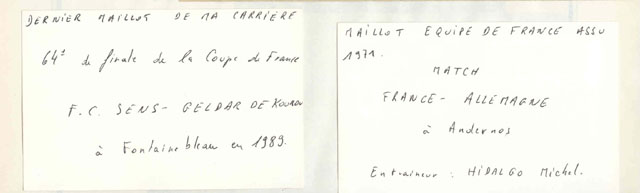 DERNIER MAILLOT DE MA CARRIÈRE
64è de finale de la Coupe de France
F.C. SENS - GELDAR DE KOUROU
à Fontainebleau en 1989.
MAILLOT EQUIPE DE FRANCE ASSU
1971.
MATCH
FRANCE - ALLEMAGNE
à Andernos
Entraineur : HIDALGO Michel.